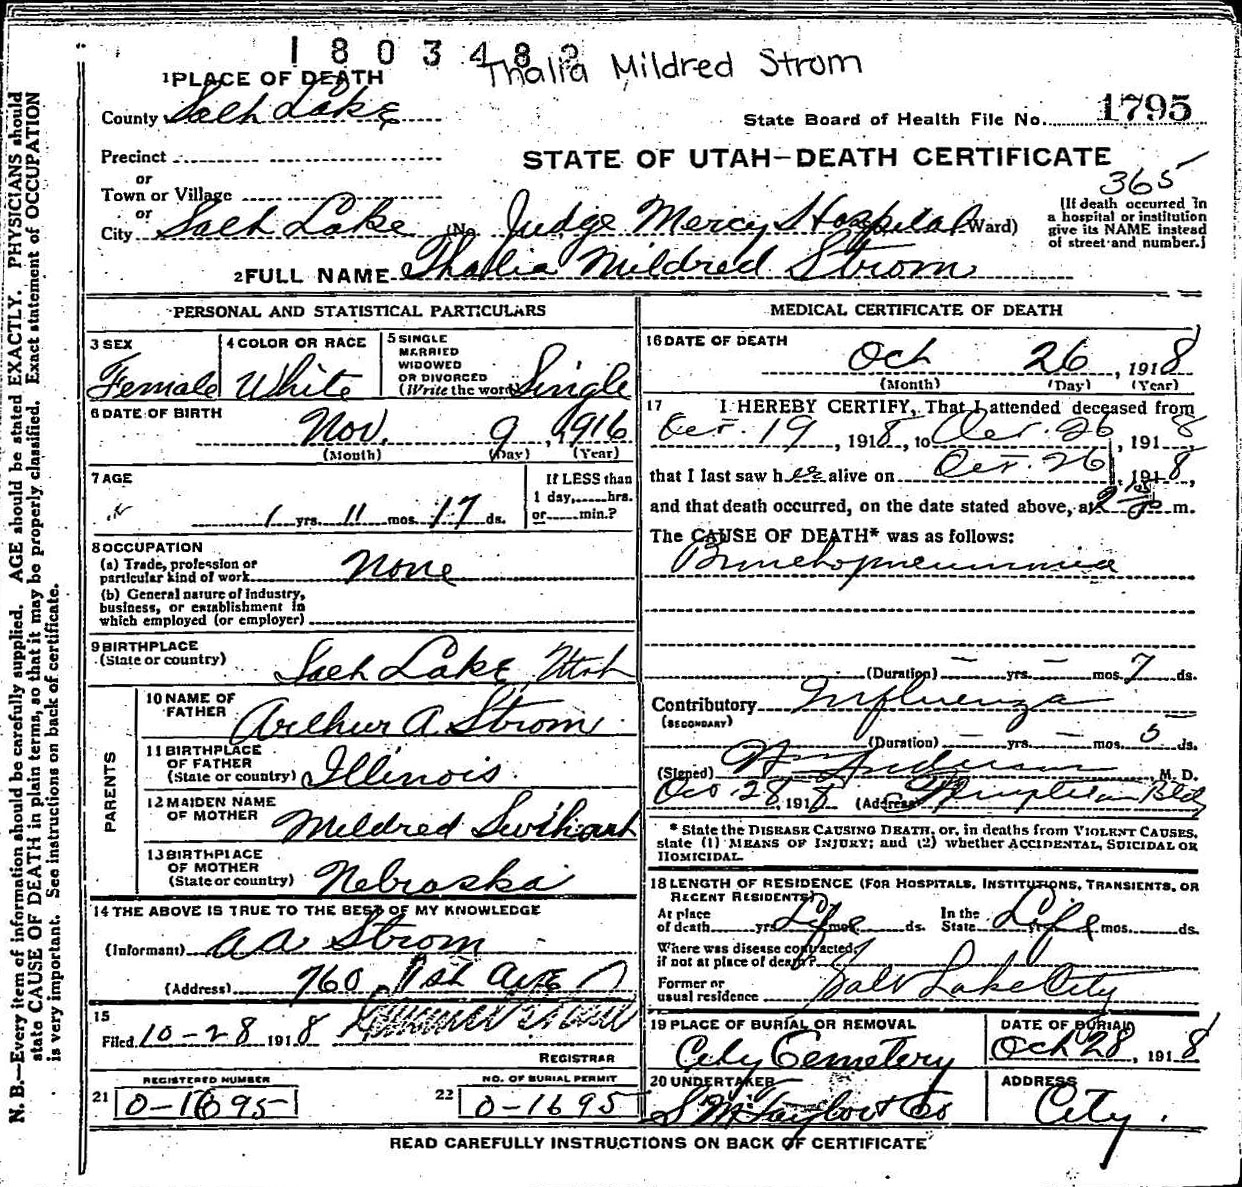 1803482
Thalia Mildred Strom
1 PLACE OF DEATH
County Salt Lake
State Board of Health File No. 1795
Precinct
STATE OF UTAH—DEATH CERTIFICATE
or
365
Town or Village
or
City Salt Lake (No. Judge Mercy Hospital Ward)
[If death occurred in a hospital or institution give its NAME instead of street and number.]
2 FULL NAME Thalia Mildred Strom
PERSONAL AND STATISTICAL PARTICULARS
3 SEX
Female
4 COLOR OR RACE
White
5 SINGLE
MARRIED
WIDOWED
OR DIVORCED
(Write the word) Single
6 DATE OF BIRTH
Nov. 9, 1916
(Month) (Day) (Year)
7 AGE
1 yrs. 11 mos. 17 ds.
If LESS than
1 day, hrs.
or min.?
8 OCCUPATION
(a) Trade, profession or
particular kind of work None
(b) General nature of industry,
business, or establishment in
which employed (or employer)
9 BIRTHPLACE
(State or country) Salt Lake, Utah
PARENTS
10 NAME OF
FATHER Arthur A. Strom
11 BIRTHPLACE
OF FATHER
(State or country) Illinois.
12 MAIDEN NAME
OF MOTHER Mildred Swihart
13 BIRTHPLACE
OF MOTHER
(State or country) Nebraska
14 THE ABOVE IS TRUE TO THE BEST OF MY KNOWLEDGE
(Informant) A A Strom
(Address) 760 1st Ave
15
Filed 10-28 1918
REGISTRAR
REGISTERED NUMBER
21 0-1695
NO. OF BURIAL PERMIT
22 0-1695
MEDICAL CERTIFICATE OF DEATH
16 DATE OF DEATH
Oct 26, 1918
(Month) (Day) (Year)
17 I HEREBY CERTIFY, That I attended deceased from
Oct. 19, 1918, to Oct. 26, 1918
that I last saw her alive on Oct. 26, 1918,
and that death occurred, on the date stated above, at m.
The CAUSE OF DEATH* was as follows:
Bronchopneumonia
(Duration) — yrs. — mos. 7 ds.
Contributory Influenza
(SECONDARY)
(Duration) — yrs. — mos. 5 ds.
(Signed) Anderson, M. D.
Oct. 28, 1918 (Address) Templeton Bldg
* State the DISEASE CAUSING DEATH, or, in deaths from VIOLENT CAUSES,
state (1) MEANS OF INJURY; and (2) whether ACCIDENTAL, SUICIDAL OR
HOMICIDAL.
18 LENGTH OF RESIDENCE (FOR HOSPITALS, INSTITUTIONS, TRANSIENTS, OR
RECENT RESIDENTS)
At place
of death yrs. Life mos. ds. In the
State Life yrs. mos. ds.
Where was disease contracted,
if not at place of death?
Former or
usual residence Salt Lake City
19 PLACE OF BURIAL OR REMOVAL
City Cemetery
DATE OF BURIAL
Oct 28, 1918
20 UNDERTAKER
S M Taylor & Co
ADDRESS
City.
READ CAREFULLY INSTRUCTIONS ON BACK OF CERTIFICATE
N. B.—Every item of information should be carefully supplied. AGE should be stated EXACTLY. PHYSICIANS should
state CAUSE OF DEATH in plain terms, so that it may be properly classified. Exact statement of OCCUPATION
is very important. See instructions on back of certificate.